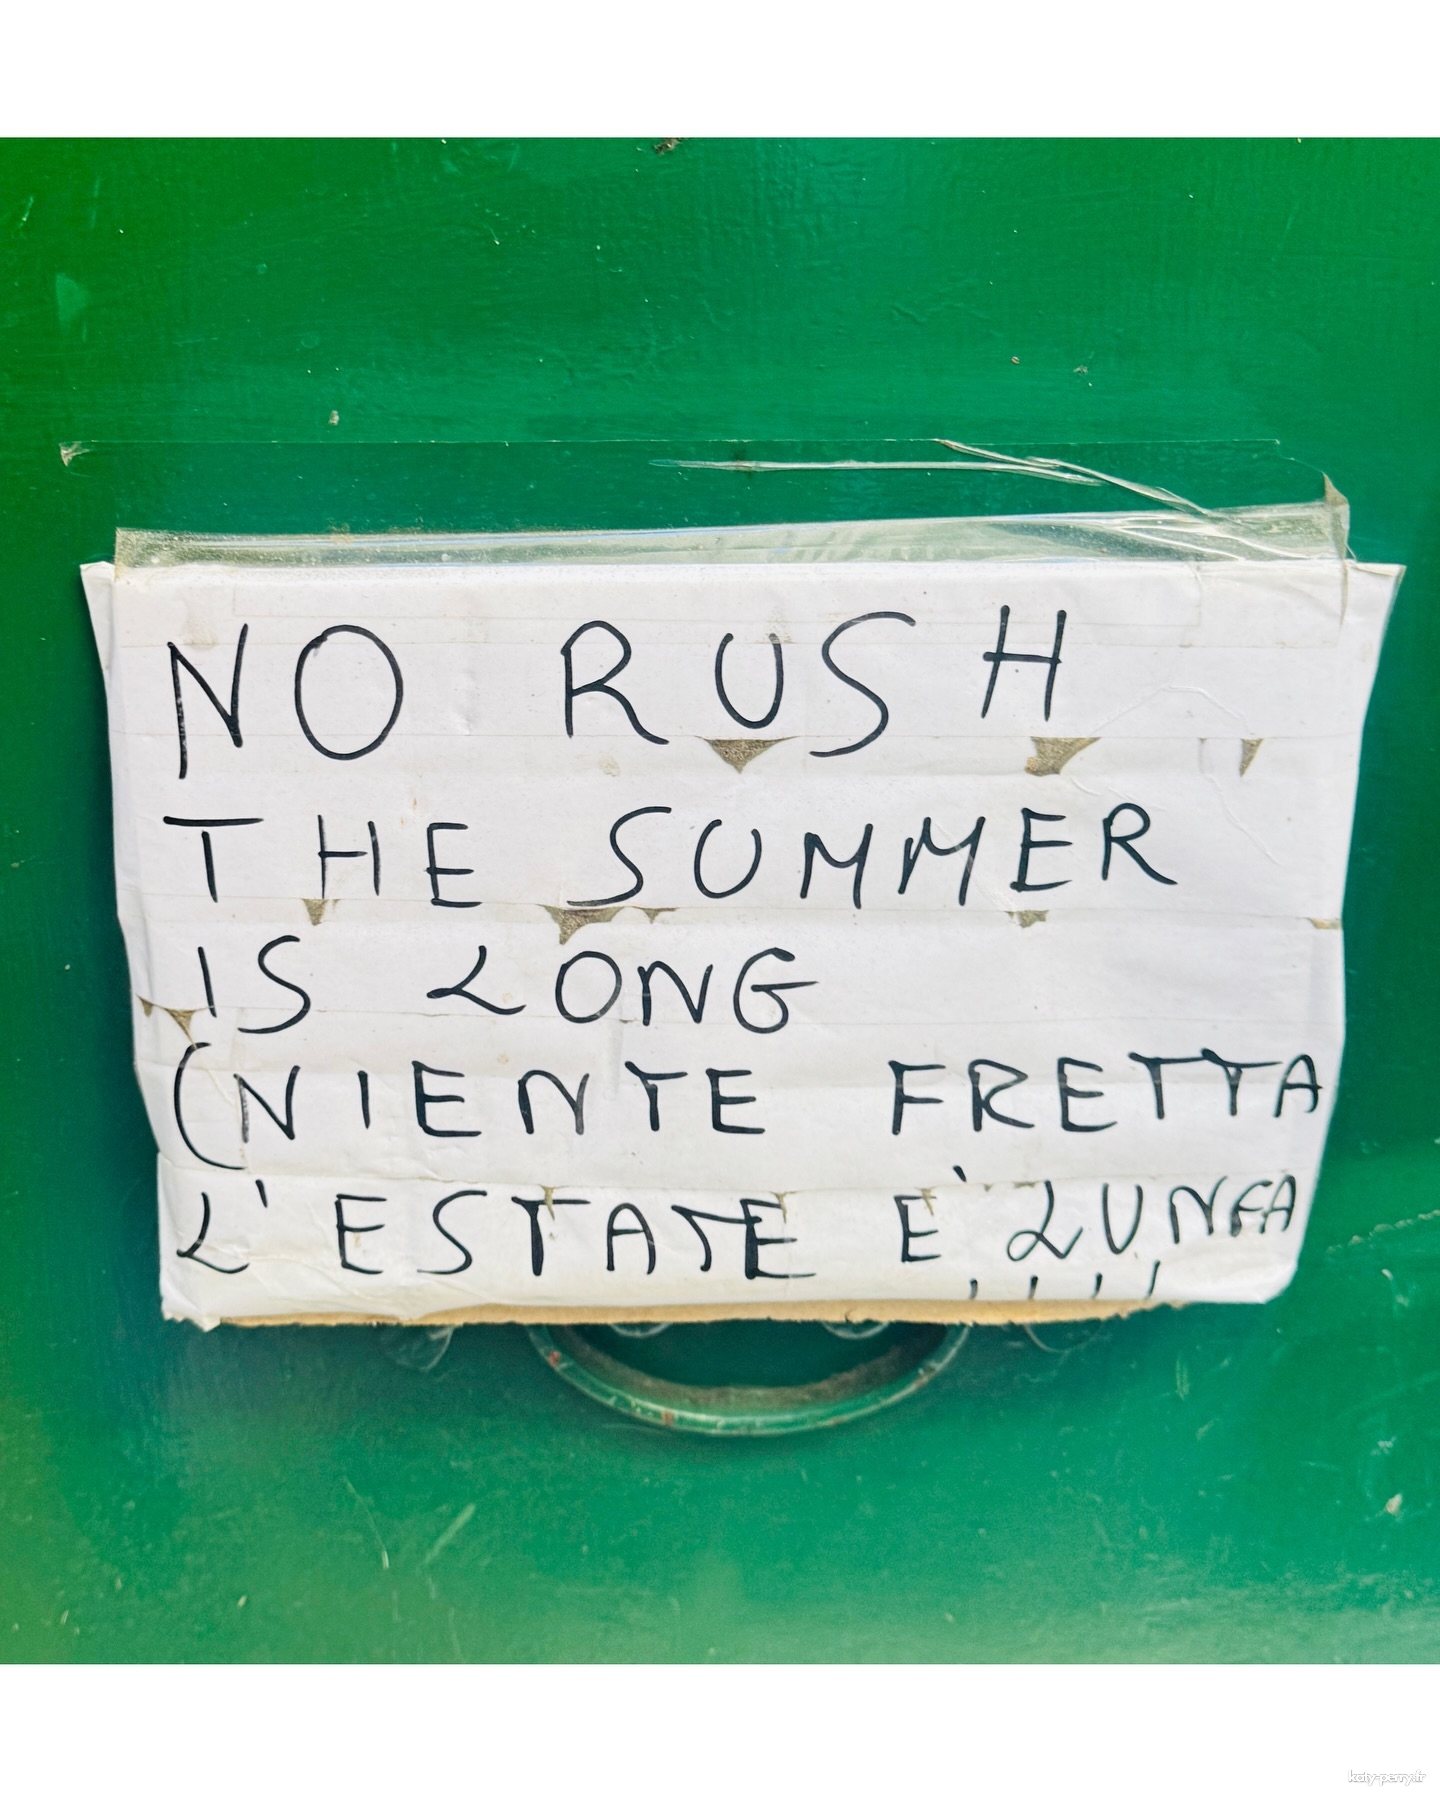 NO RUSH
THE SUMMER
IS LONG
(NIENTE FRETTA
L'ESTATE E' LUNGA
! ! ! !
katy-perry.fr